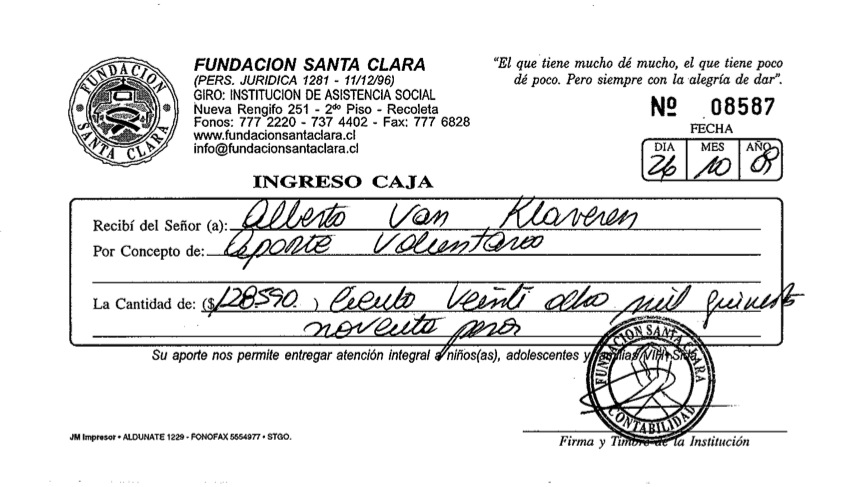 FUNDACION SANTA CLARA
FUNDACION SANTA CLARA
(PERS. JURIDICA 1281 - 11/12/96)
GIRO: INSTITUCION DE ASISTENCIA SOCIAL
Nueva Rengifo 251 - 2do Piso - Recoleta
Fonos: 777 2220 - 737 4402 - Fax: 777 6828
www.fundacionsantaclara.cl
info@fundacionsantaclara.cl
"El que tiene mucho dé mucho, el que tiene poco
dé poco. Pero siempre con la alegría de dar".
Nº 08587
FECHA
DIA MES AÑO
26 10 09
INGRESO CAJA
Recibí del Señor (a): Alberto Van Klaveren
Por Concepto de: Aporte Voluntario
La Cantidad de: ($ 128590 ) Ciento Veinti ocho mil quinientos
noventa pesos
Su aporte nos permite entregar atención integral a niños(as), adolescentes y familias VIH-Sida
FUNDACION SANTA CLARA
CONTABILIDAD
JM Impresor • ALDUNATE 1229 - FONOFAX 5554977 • STGO.
Firma y Timbre de la Institución